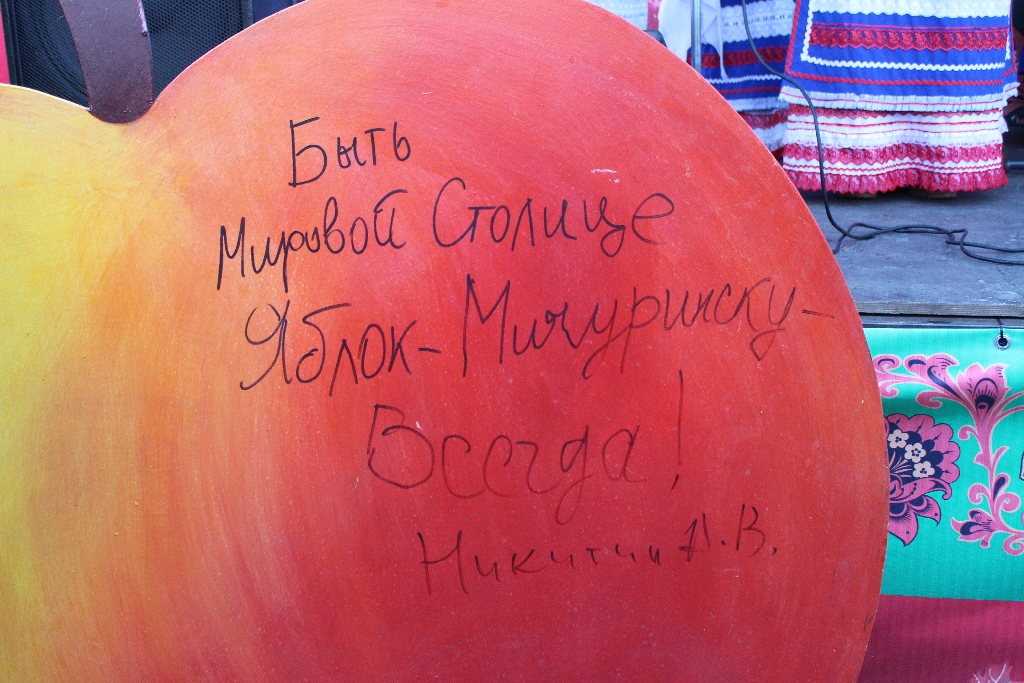 Быть
Мировой Столице
Яблок - Мичуринску -
Всегда!
Никитин А.В.